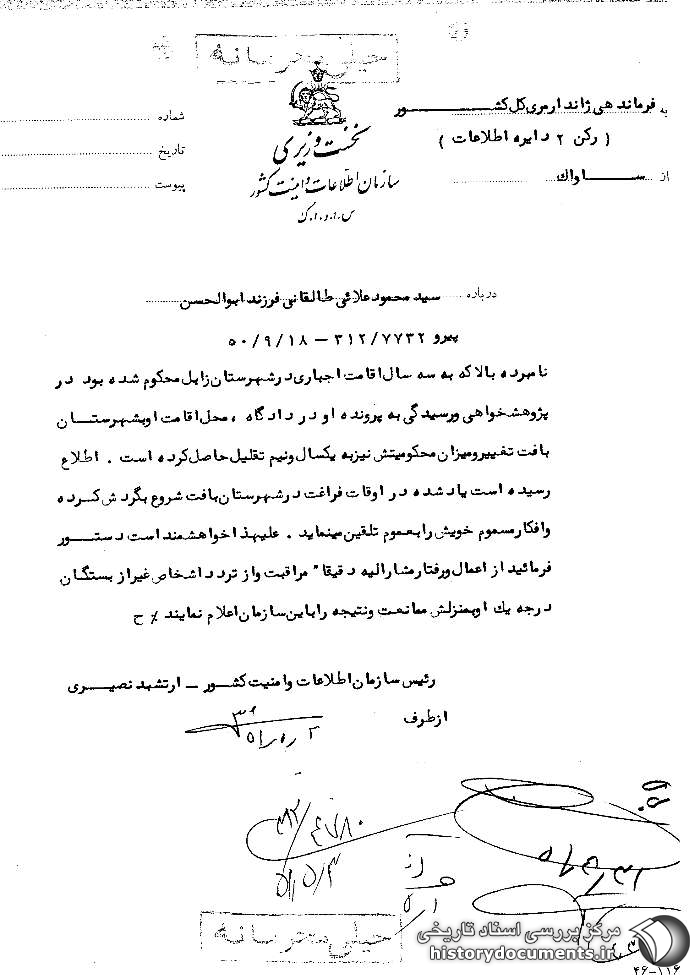 خیلی محرمانه
به فرماندهی ژاندارمری کل کشور
( رکن ۲ دایره اطلاعات )
از ساواک
نخست وزیری
سازمان اطلاعات و امنیت کشور
س.ا.و.ا.ک
شماره
تاریخ
پیوست
درباره سید محمود علائی طالقانی فرزند ابوالحسن
پیرو ۳۱۲/۷۷۳۲ – ۵۰/۹/۱۸
نامبرده بالا که به سه سال اقامت اجباری در شهرستان زابل محکوم شده بود در
پژوهشخواهی و رسیدگی به پرونده او در دادگاه ، محل اقامت او بشهرستان
بافت تغییر و میزان محکومیتش نیز به یکسال و نیم تقلیل حاصل کرده است . اطلاع
رسیده است یاد شده در اوقات فراغت در شهرستان بافت شروع بگردش کرده
و افکار مسموم خویش را بعموم تلقین مینماید . علیهذا خواهشمند است دستور
فرمائید از اعمال و رفتار مشارالیه دقیقا" مراقبت و از تردد اشخاص غیر از بستگان
درجه یک او بمنزلش ممانعت و نتیجه را باین سازمان اعلام نمایند ٪ ح
رئیس سازمان اطلاعات و امنیت کشور – ارتشبد نصیری
از طرف
خیلی محرمانه
مرکز بررسی اسناد تاریخی
historydocuments.ir
۴۶-۱۱۶